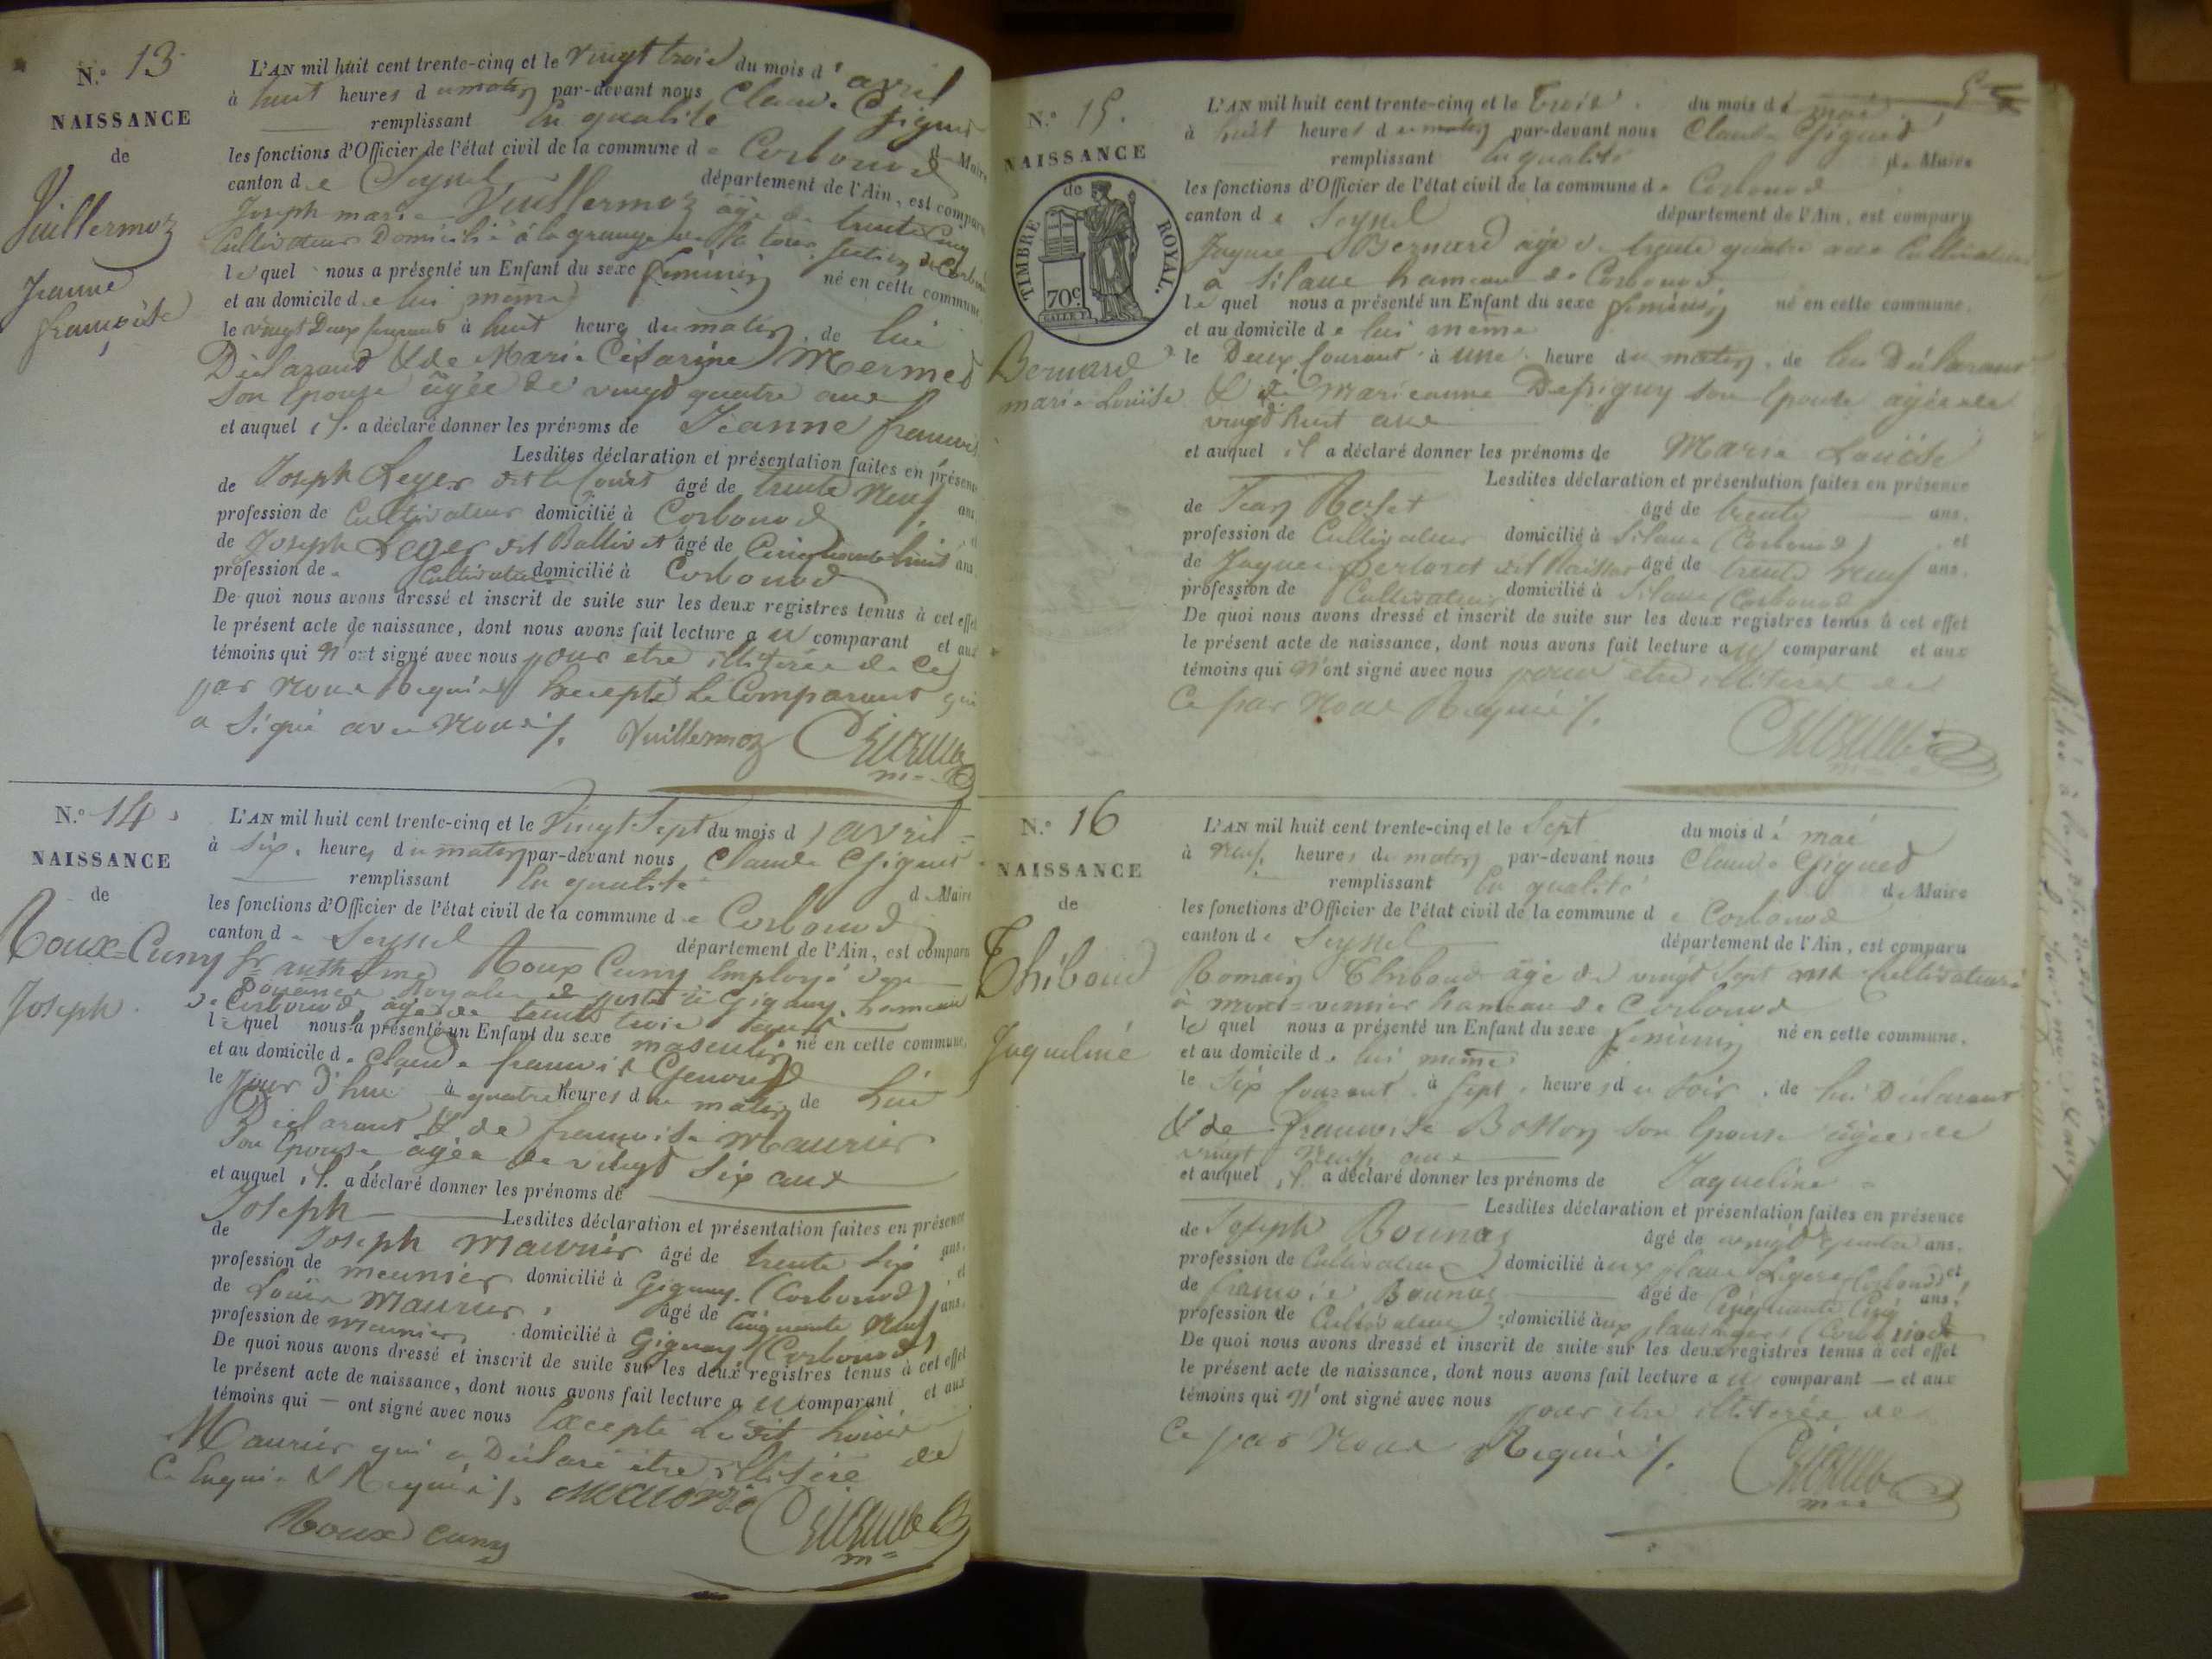 N.º 13
NAISSANCE
de
Vuillermoz
Jeanne
françoise
L'AN mil huit cent trente-cinq et le vingt trois du mois d'avril
à huit heures du matin par-devant nous Claude Gignet
remplissant en qualité de Maire
les fonctions d'Officier de l'état civil de la commune de Corbonod
canton de Seyssel département de l'Ain, est comparu
Joseph marie Vuillermoz âgé de trente cinq
Cultivateur Domicilié à la grange de la tour section de Corbonod
lequel nous a présenté un Enfant du sexe féminin né en cette commune,
et au domicile de lui même
le vingt Deux courant à huit heures du matin, de lui
Déclarant & de Marie Césarine Mermet
son épouse âgée de vingt quatre ans
et auquel il a déclaré donner les prénoms de Jeanne françoise
Lesdites déclaration et présentation faites en présence
de Joseph Leger dit le Court âgé de trente neuf ans
profession de Cultivateur domicilié à Corbonod et
de Joseph Leger dit Bollivet âgé de Cinquante huit ans
profession de Cultivateur domicilié à Corbonod
De quoi nous avons dressé et inscrit de suite sur les deux registres tenus à cet effet
le présent acte de naissance, dont nous avons fait lecture au comparant et aux
témoins qui n'ont signé avec nous pour être illitérés de ce
par nous Requis Excepté le Comparant qui
a signé avec nous /.
Vuillermoz
N.º 14
NAISSANCE
de
Roux=Cuny
Joseph
L'AN mil huit cent trente-cinq et le Vingt Sept du mois d'avril
à Six heures du matin par-devant nous Claude Gignet
remplissant en qualité de Maire
les fonctions d'Officier de l'état civil de la commune de Corbonod
canton de Seyssel département de l'Ain, est comparu
fr anthelme Roux Cuny Employé des
Douanes Royales de poste à Gignez, hameau
de Corbonod, âgé de trente trois ans
lequel nous a présenté un Enfant du sexe masculin né en cette commune,
et au domicile de Claude françois Genoud
le jour d'hui à quatre heures du matin de lui
Déclarant & de françoise Maurier
son épouse âgée de vingt six ans
et auquel il a déclaré donner les prénoms de
Joseph Lesdites déclaration et présentation faites en présence
de Joseph Maurier âgé de trente six ans,
profession de meunier domicilié à Gignez (Corbonod), et
de Louis Maurier, âgé de Cinquante neuf ans,
profession de meunier domicilié à Gignez (Corbonod)
De quoi nous avons dressé et inscrit de suite sur les deux registres tenus à cet effet
le présent acte de naissance, dont nous avons fait lecture au comparant, et aux
témoins qui — ont signé avec nous Excepté Ledit Louis
Maurier qui a Déclaré être illitéré de
Ce Enquis & Requis /.
Roux Cuny
N.º 15.
NAISSANCE
de
TIMBRE ROYAL.
70c
Bernard
marie Louise
L'AN mil huit cent trente-cinq et le Trois du mois de mai
à huit heures du matin par-devant nous Claude Gignet
remplissant en qualité de Maire
les fonctions d'Officier de l'état civil de la commune de Corbonod
canton de Seyssel département de l'Ain, est comparu
Jaques Bernard âgé de trente quatre ans Cultivateur
a Silans hameau de Corbonod,
lequel nous a présenté un Enfant du sexe féminin né en cette commune,
et au domicile de lui même
le Deux courant à une heure du matin, de lui Déclarant
& de Marieanne Depigny son épouse âgée de
vingt huit ans
et auquel il a déclaré donner les prénoms de Marie Louise
Lesdites déclaration et présentation faites en présence
de Jean Rosset âgé de trente ans,
profession de Cultivateur domicilié à Silans (Corbonod), et
de Jaques âgé de trente neuf ans,
profession de Cultivateur domicilié à Silans (Corbonod
De quoi nous avons dressé et inscrit de suite sur les deux registres tenus à cet effet
le présent acte de naissance, dont nous avons fait lecture au comparant et aux
témoins qui n'ont signé avec nous pour être illitérés de
Ce par nous Requis /.
N.º 16
NAISSANCE
de
Thiboud
Jaqueline
L'AN mil huit cent trente-cinq et le Sept du mois de mai
à neuf heures du matin par-devant nous Claude Gignet
remplissant en qualité de Maire
les fonctions d'Officier de l'état civil de la commune de Corbonod
canton de Seyssel département de l'Ain, est comparu
Romain Thiboud âgé de vingt sept ans Cultivateur
à hameau de Corbonod
lequel nous a présenté un Enfant du sexe féminin né en cette commune,
et au domicile de lui même
le Six courant à Sept heures du soir, de lui Déclarant
& de françoise Botton son épouse âgée de
vingt neuf ans
et auquel il a déclaré donner les prénoms de Jaqueline
Lesdites déclaration et présentation faites en présence
de Joseph Bounaz âgé de vingt quatre ans,
profession de Cultivateur domicilié aux (Corbonod) et
de françois Bounaz âgé de Cinquante Cinq ans,
profession de Cultivateur domicilié aux (Corbonod
De quoi nous avons dressé et inscrit de suite sur les deux registres tenus à cet effet
le présent acte de naissance, dont nous avons fait lecture au comparant — et aux
témoins qui n'ont signé avec nous pour être illitérés de
Ce par nous Requis /.